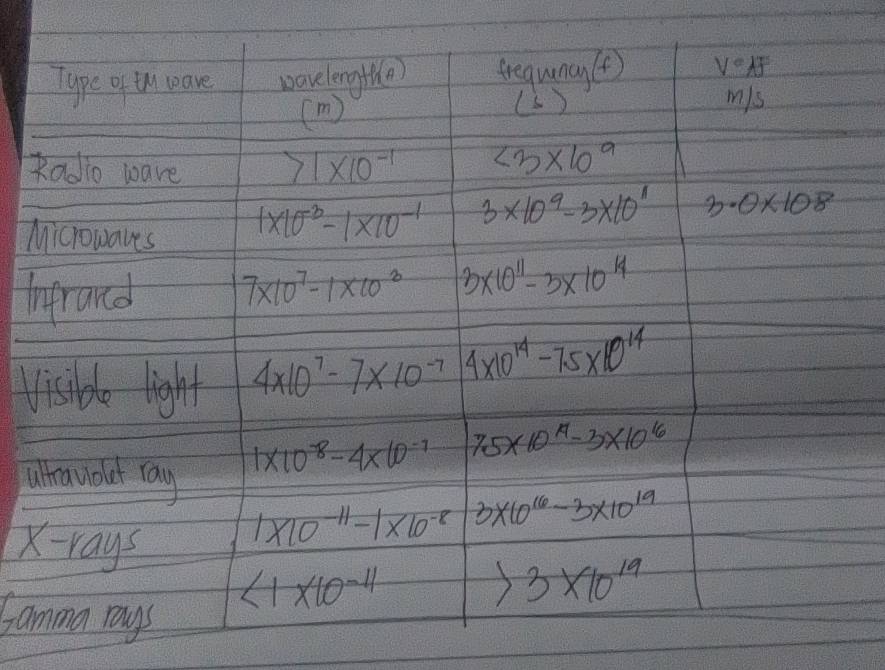 Type of EM wave wavelength(λ) frequency(f) V=λf
(m) (s) m/s
Radio wave >1×10⁻¹ <3×10⁹
Microwaves 1×10⁻³-1×10⁻¹ 3×10⁹-3×10¹¹ 3.0×108
Infrared 7×10⁷-1×10³ 3×10¹¹-3×10¹⁴
Visible light 4×10⁷-7×10⁻⁷ 4×10¹⁴-7.5×10¹⁴
ultraviolet ray 1×10⁻⁸-4×10⁻⁷ 7.5×10¹⁴-3×10¹⁶
X-rays 1×10⁻¹¹-1×10⁻⁸ 3×10¹⁶-3×10¹⁹
Gamma rays <1×10⁻¹¹ >3×10¹⁹